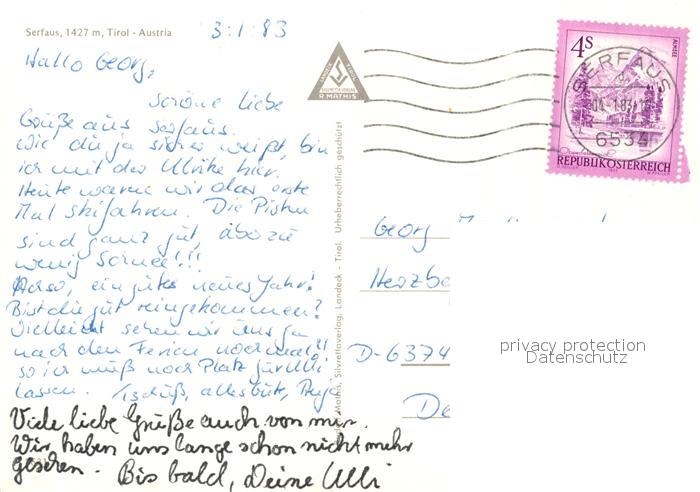 Serfaus, 1427 m, Tirol - Austria
3.1.83
Hallo Georg,
schöne liebe
Grüße aus Serfaus.
Wie du ja sicher weißt, bin
ich mit der Ulrike hier.
Heute waren wir das erste
Mal skifahren. Die Pisten
sind ganz gut, aber zu
wenig Schnee!!!
Also, ein gutes neues Jahr!
Bist du gut reingekommen?
Vielleicht sehen wir uns ja
nach den Ferien nochmal?!
so ich muß noch Platz für Ulli
lassen. Tschüß, alles Gute,
Viele liebe Grüße auch von mir.
Wir haben uns lange schon nicht mehr
gesehen. Bis bald, Deine Ulli
R. MATHIS
Mathis, Silvrettaverlag, Landeck - Tirol. Urheberrechtlich geschützt
4S
ALMSEE
REPUBLIK ÖSTERREICH
SERFAUS
04.-1.83
6534
Georg
Herzbe
D-6374
De
privacy protection
Datenschutz